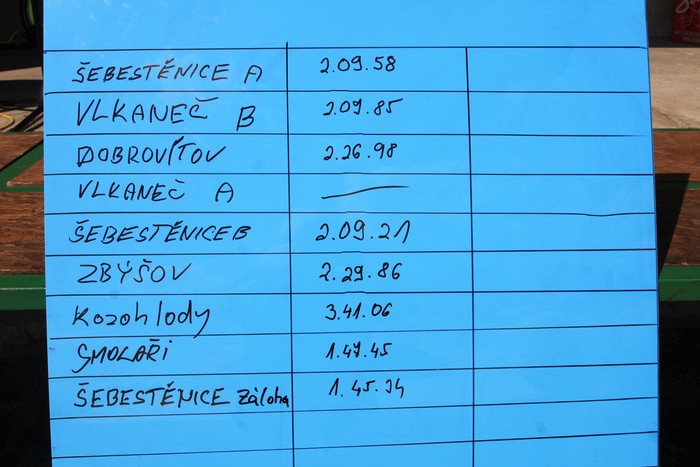 ŠEBESTĚNICE A 2.09.58
VLKANEČ B 2.09.85
DOBROVÍTOV 2.26.98
VLKANEČ A —
ŠEBESTĚNICE B 2.09.21
ZBÝŠOV 2.29.86
Kozohlody 3.41.06
SMOLAŘI 1.47.45
ŠEBESTĚNICE záloha 1.45.34